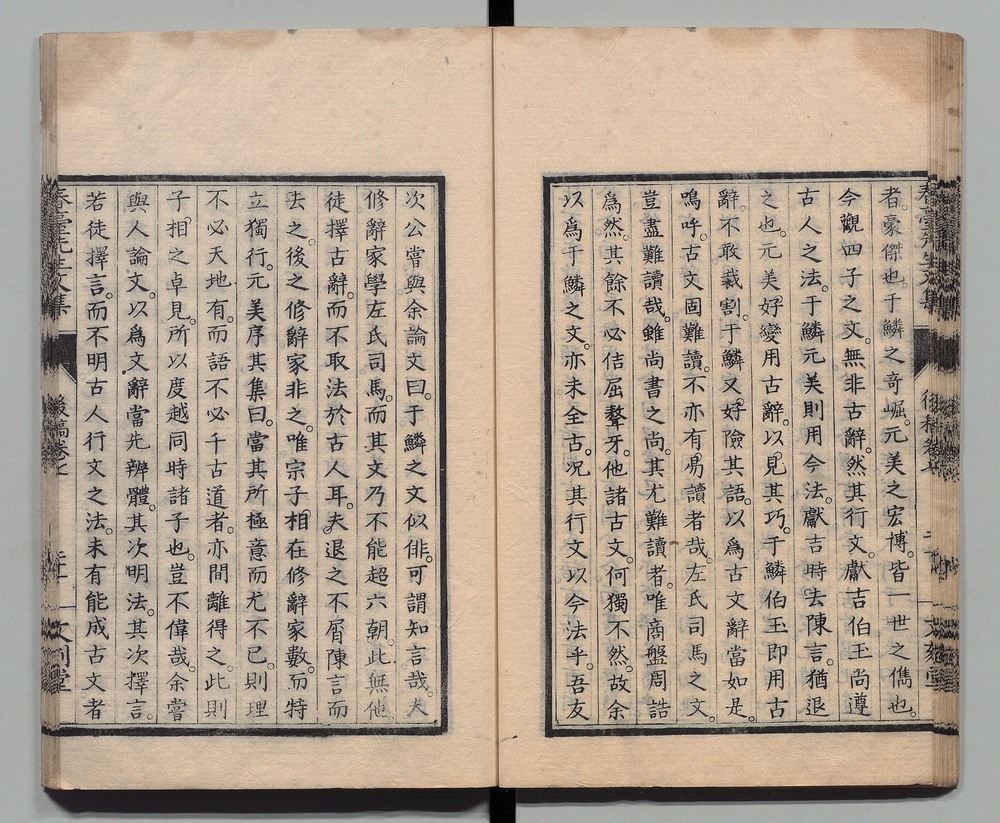 者。豪傑也。于鱗之奇崛。元美之宏博。皆一世之儁也。
今觀四子之文。無非古辭。然其行文。獻吉伯玉尚遵
古人之法。于鱗元美則用今法。獻吉時去陳言。猶退
之也。元美好變用古辭。以見其巧。于鱗伯玉即用古
辭。不敢裁割。于鱗又好險其語。以為古文辭當如是。
嗚呼。古文固難讀。不亦有易讀者哉。左氏司馬之文。
豈盡難讀哉。雖尚書之尚。其尤難讀者。唯商盤周誥
爲然。其餘不必佶屈聱牙。他諸古文。何獨不然。故余
以爲于鱗之文。亦未全古。况其行文以今法乎。吾友
次公嘗與余論文曰。于鱗之文似俳。可謂知言哉。夫
修辭家學左氏司馬。而其文乃不能超六朝。此無他。
徒擇古辭。而不取法於古人耳。夫退之不屑陳言而
去之。後之修辭家非之。唯宗子相在修辭家數。而特
立獨行。元美序其集曰。當其所極意而尤不已。則理
不必天地有。而語不必千古道者。亦間離得之。此則
子相之卓見。所以度越同時諸子也。豈不偉哉。余嘗
與人論文。以爲文辭當先辨體。其次明法。其次擇言。
若徒擇言。而不明古人行文之法。未有能成古文者
春臺先生文集
後稿卷七